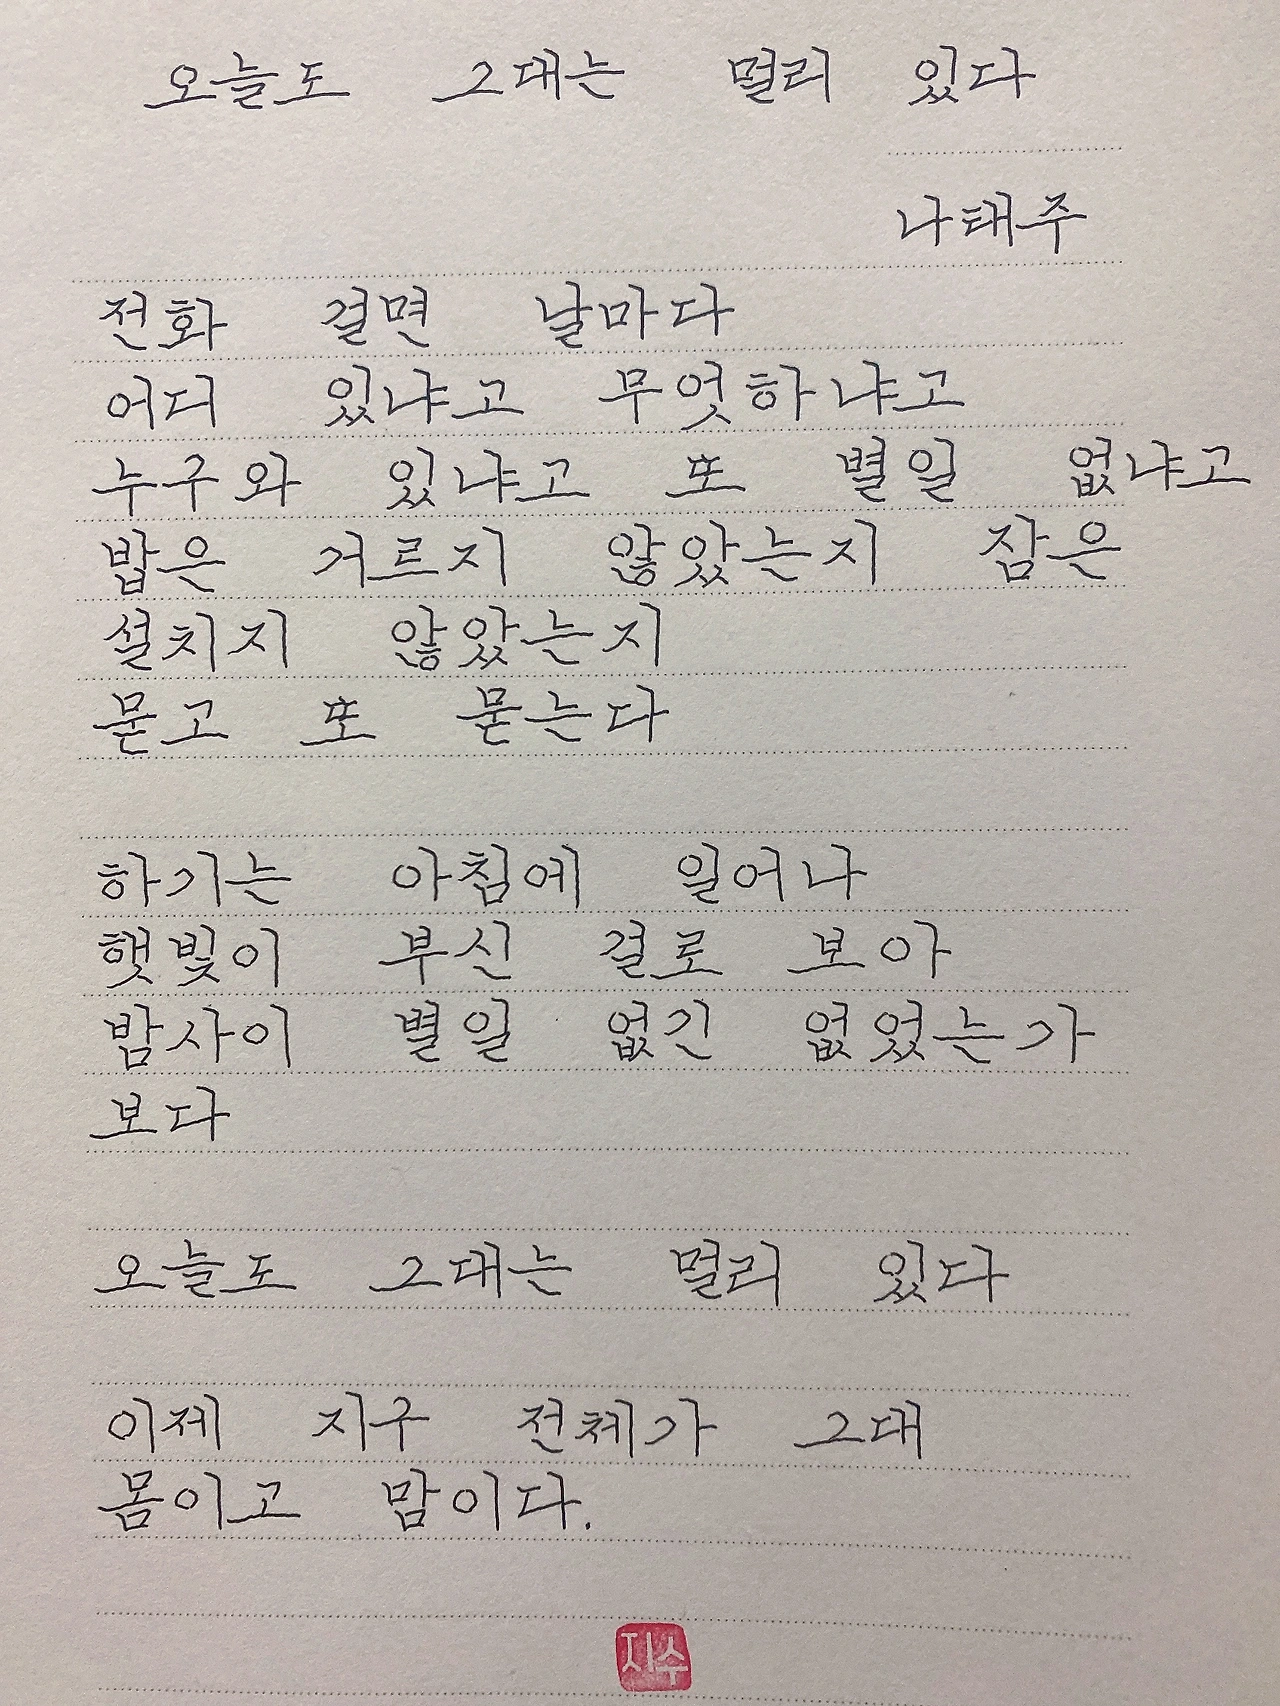 오늘도 그대는 멀리 있다
나태주
전화 걸면 날마다
어디 있냐고 무엇하냐고
누구와 있냐고 또 별일 없냐고
밥은 거르지 않았는지 잠은
설치지 않았는지
묻고 또 묻는다
하기는 아침에 일어나
햇빛이 부신 걸로 보아
밤사이 별일 없긴 없었는가
보다
오늘도 그대는 멀리 있다
이제 지구 전체가 그대
몸이고 맘이다.
지수